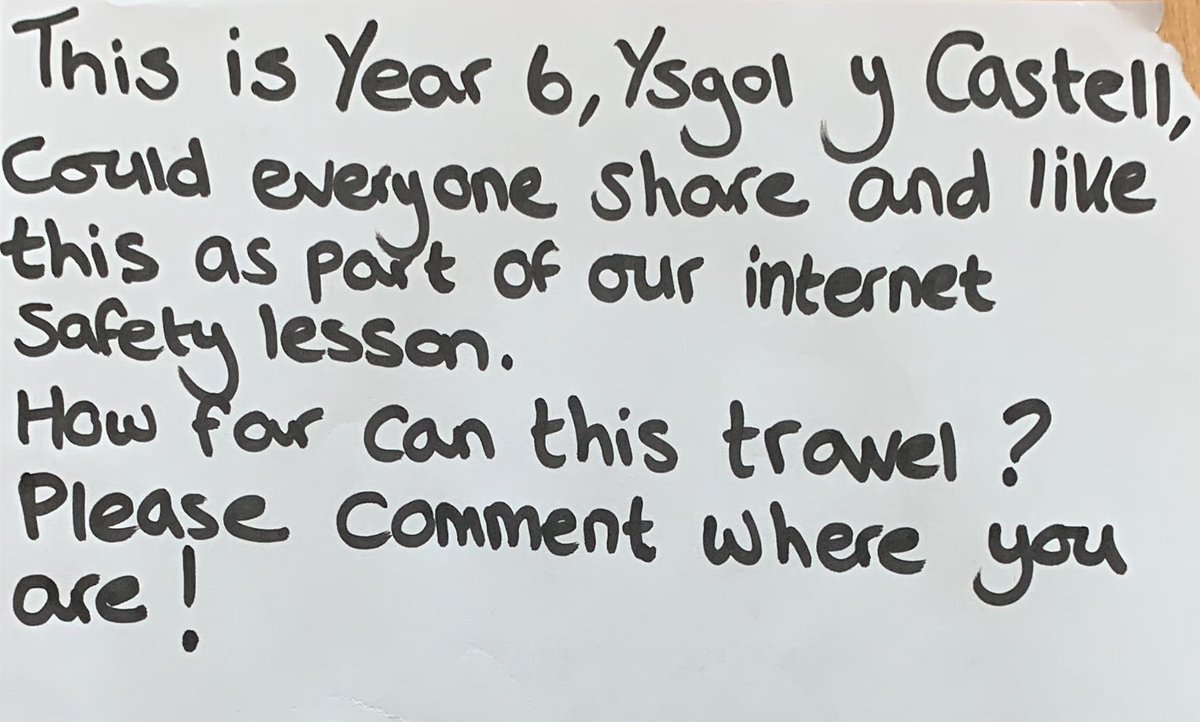 This is Year 6, Ysgol y Castell,
Could everyone share and like
this as part of our internet
Safety lesson.
How far can this travel ?
Please comment where you
are !